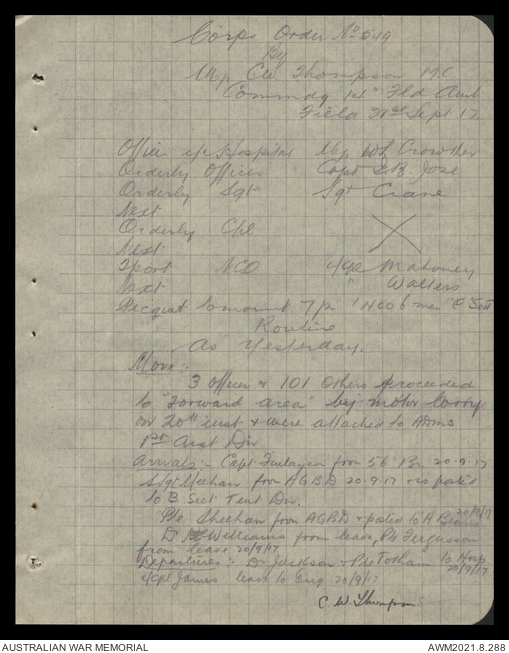 Corps Order No 549
By
Maj Cle Thompson MC
Commdg 1st Fld Amb
Field 21st Sept 17.
Officer i/c Hospital Maj Crowther
Orderly Officer Capt S.B. Jose
Orderly Sgt Sgt Crane
Next
Orderly Cpl
Next
Tport NCO L/Cpl Mahoney
Next " Walters
Picquet to mount 7 p 1 NCO 6 men "C" Sect
Routine
As Yesterday.
Move:-
3 Officer & 101 Others proceeded
to "Forward area" by motor lorry
on 20th inst & were attached to ADMS
1st Aust Div
Arrivals:- Capt Finlayson from 56 Bn 20-9-17
S/Sgt Meehan from AGBD 20.9.17 & is posted
to B Sect Tent Div.
Pte Sheehan from AGBD & posted to A Bearers 20/9/17
Dr Williams from leave, Pte Fergusson
from leave 20/9/17
Departures:- Dr Jackson & Pte Totham to Hosp 20/9/17
L/Cpl James leave to Eng 20/9/17
C. W. Thompson
AUSTRALIAN WAR MEMORIAL
AWM2021.8.288